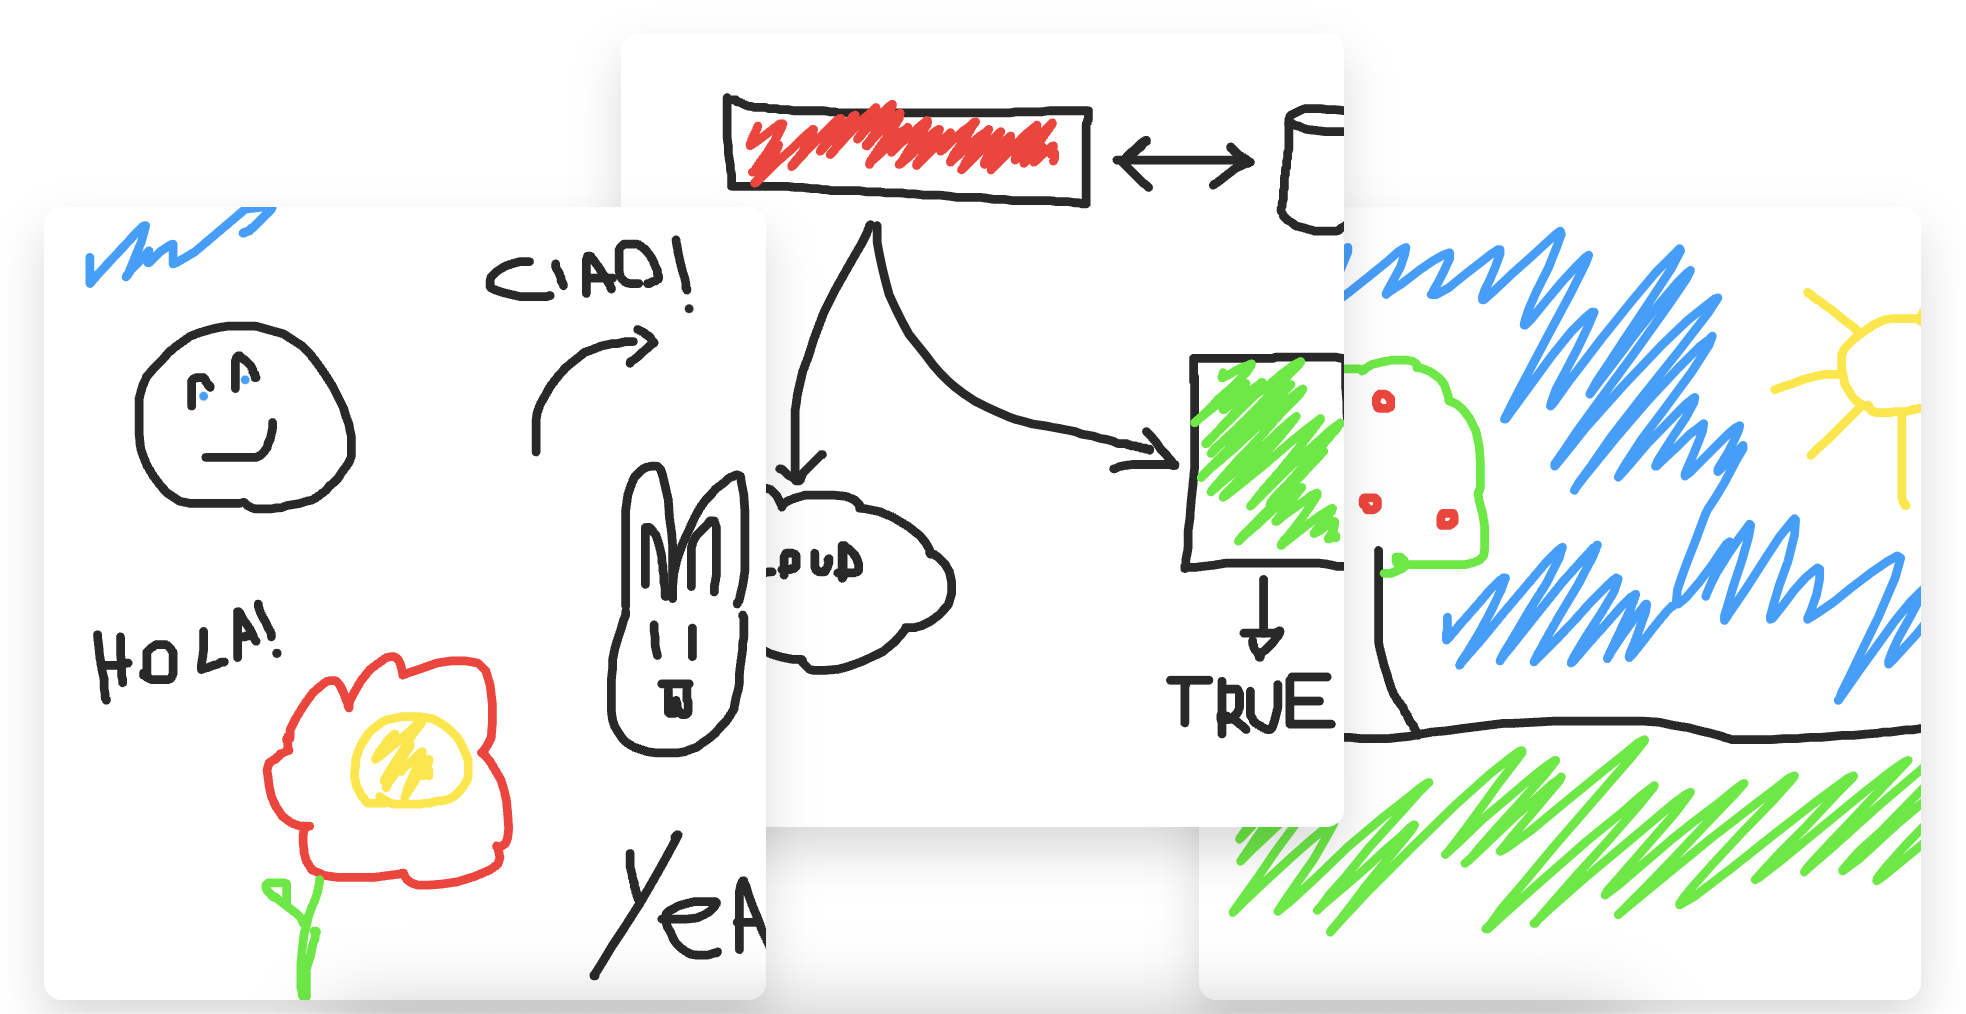 CIAO!
HOLA!
YeA
LOUD
TRUE